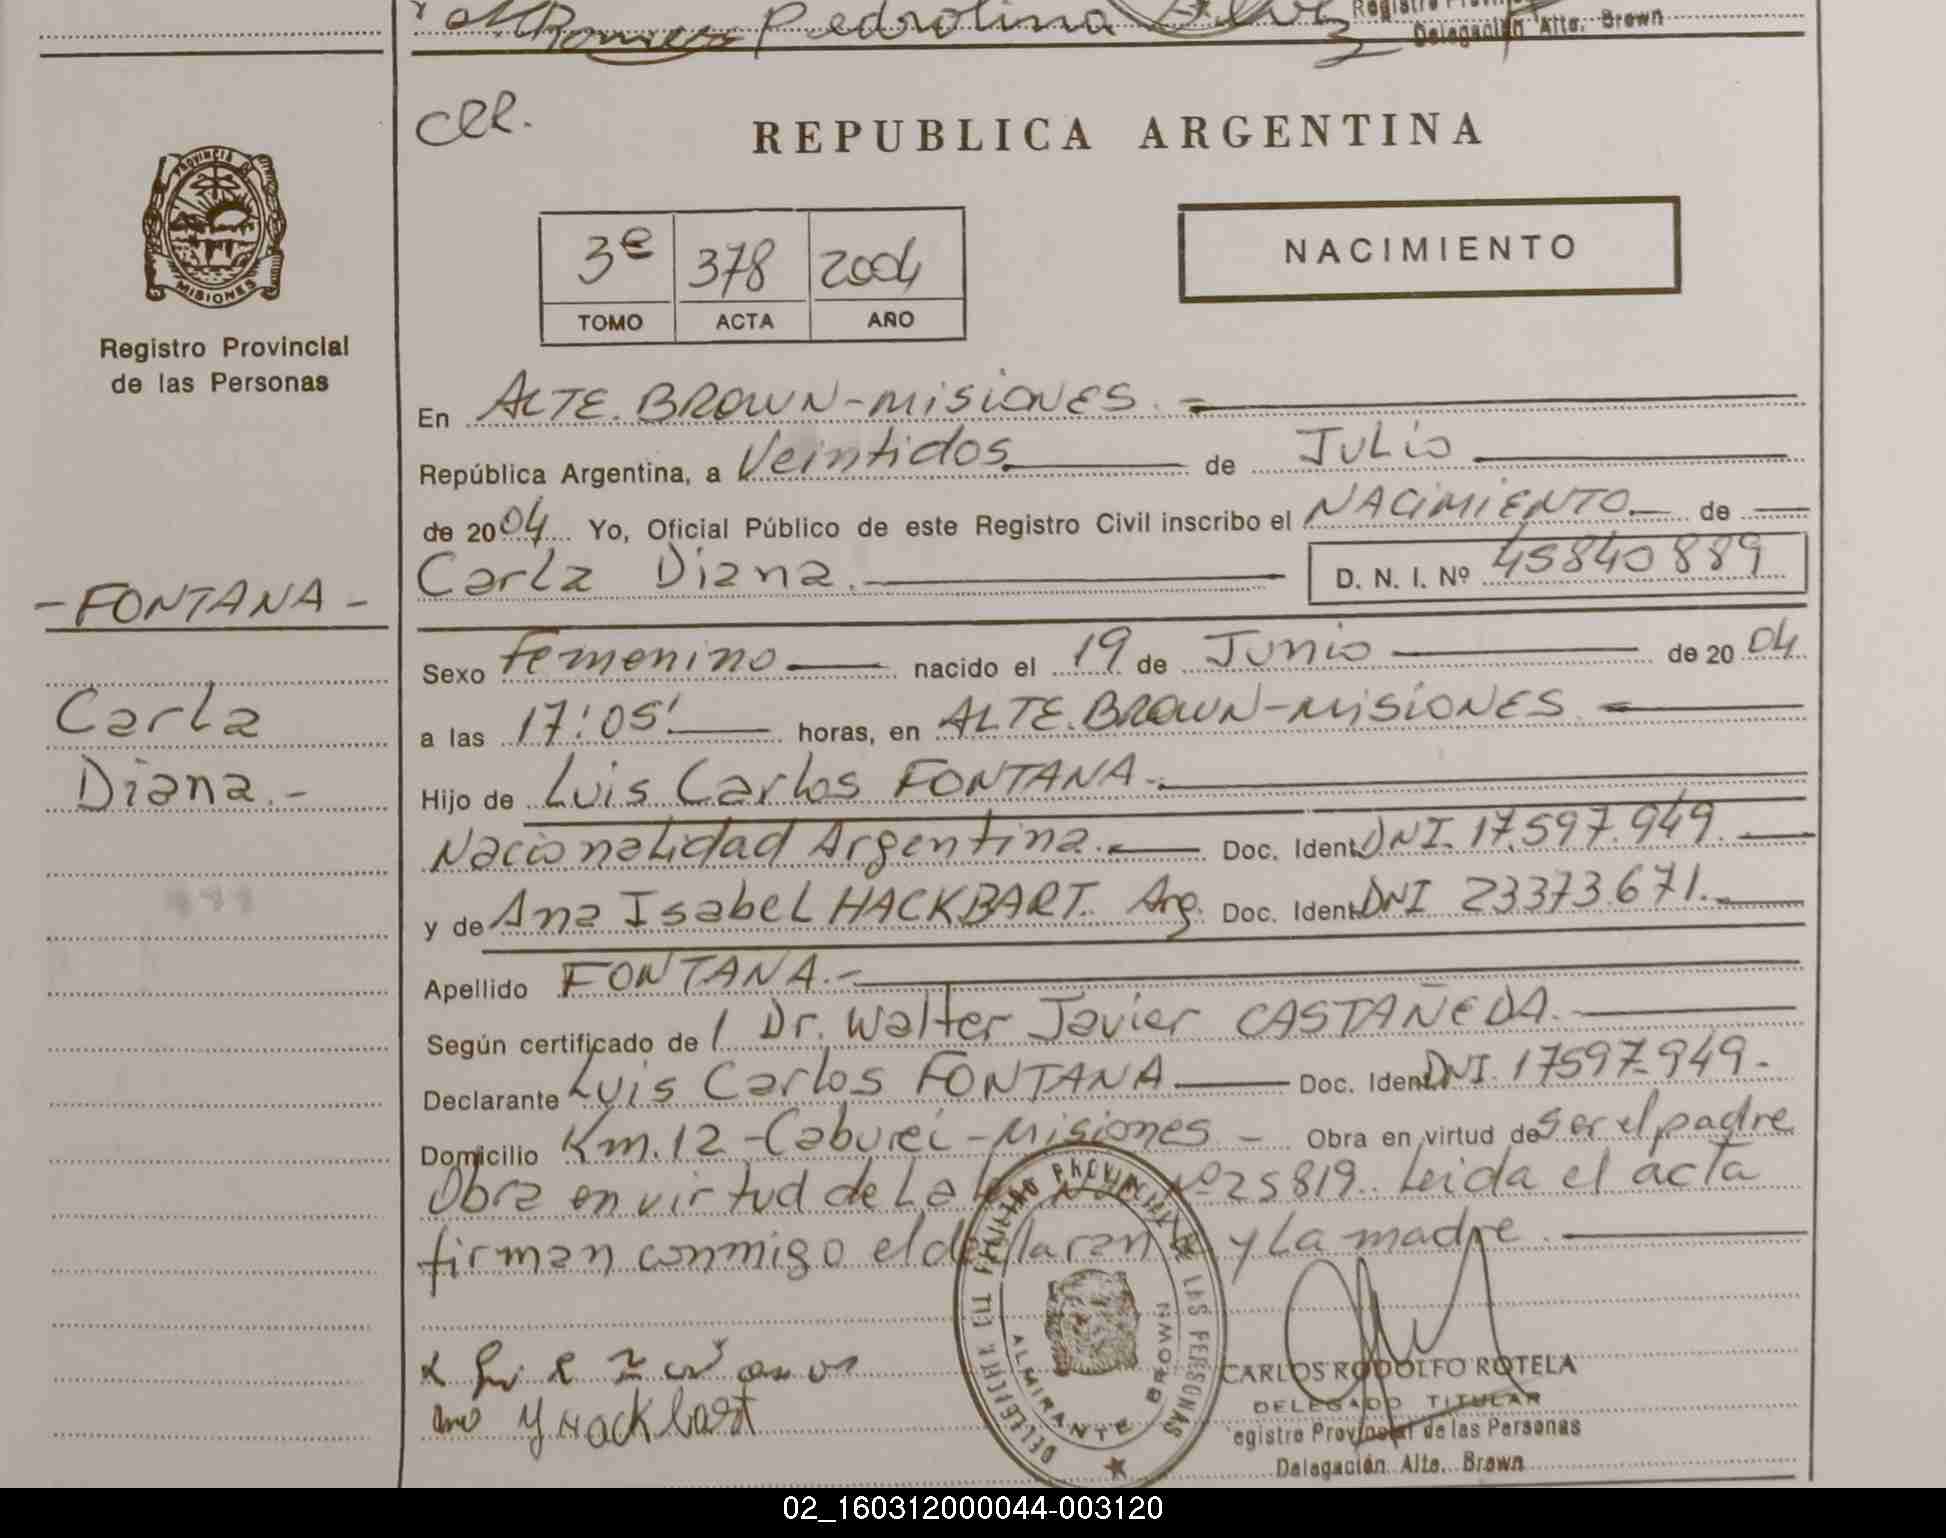 Pedrolina
Delegación Alte. Brown
REPUBLICA ARGENTINA
PROVINCIA DE
MISIONES
Registro Provincial
de las Personas
3º 378 2004
TOMO ACTA AÑO
NACIMIENTO
En ALTE. BROWN-MISIONES.-
República Argentina, a Veintidos de JULIO
de 2004 Yo, Oficial Público de este Registro Civil inscribo el NACIMIENTO de
Carla Diana. D. N. I. Nº 45840889
-FONTANA-
Carla
Diana.-
Sexo Femenino nacido el 19 de Junio de 2004
a las 17:05' horas, en ALTE. BROWN-MISIONES.
Hijo de Luis Carlos FONTANA.-
Nacionalidad Argentina. Doc. Ident. DNI. 17.597.949.
y de Ana Isabel HACKBART. Arg. Doc. Ident. DNI 23373.671.
Apellido FONTANA.-
Según certificado de Dr. Walter Javier CASTAÑEDA.
Declarante Luis Carlos FONTANA Doc. Ident. DNI. 17597.949.-
Domicilio Km.12-Caburei-Misiones - Obra en virtud de ser el padre
Obra en virtud de La Nº 25819. Leida el acta
firman conmigo el y La madre.
REGISTRO PROVINCIAL DE LAS PERSONAS
ALMIRANTE BROWN
Hackbart
CARLOS RODOLFO ROTELA
DELEGADO TITULAR
egistro Provincial de las Personas
Delegación Alte. Brown
02_160312000044-003120